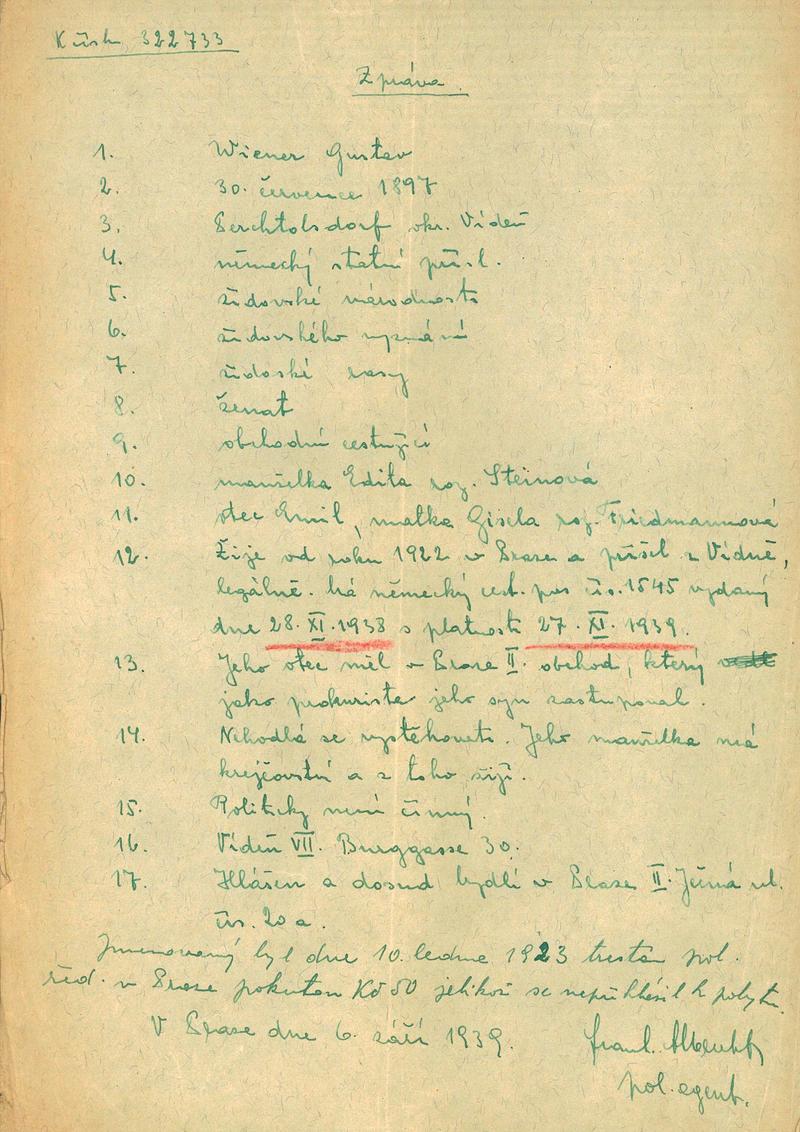 K čísl. 322733
Zpráva.
1. Wiener Gustav
2. 30. července 1897
3. Perchtolsdorf okr. Vídeň
4. německý státní přísl.
5. židovské národnosti
6. židovského vyznání
7. židoské rasy
8. ženat
9. obchodní cestující
10. manželka Edita roz. Steinová
11. otec Emil, matka Gisela roz. Friedmannová
12. Žije od roku 1922 v Praze a přišel z Vídně,
legálně. Má německý cest. pas čís. 1545 vydaný
dne 28. XI. 1938 s platností 27. XI. 1939.
13. Jeho otec měl v Praze II. obchod, který
jako prokurista jeho syn zastupoval.
14. Nehodlá se vystěhovati. Jeho manželka má
krejčovství a z toho žijí.
15. Politicky není činný.
16. Vídeň VII. Burggasse 30.
17. Hlášen a dosud bydlí v Praze II. Ječná ul.
čís. 20 a.
Jmenovaný byl dne 10. ledna 1923 trestán pol.
řed. v Praze pokutou Kč 50 jelikož se nepřihlásil k pobytu.
V Praze dne 6. září 1939.
pol. agent.